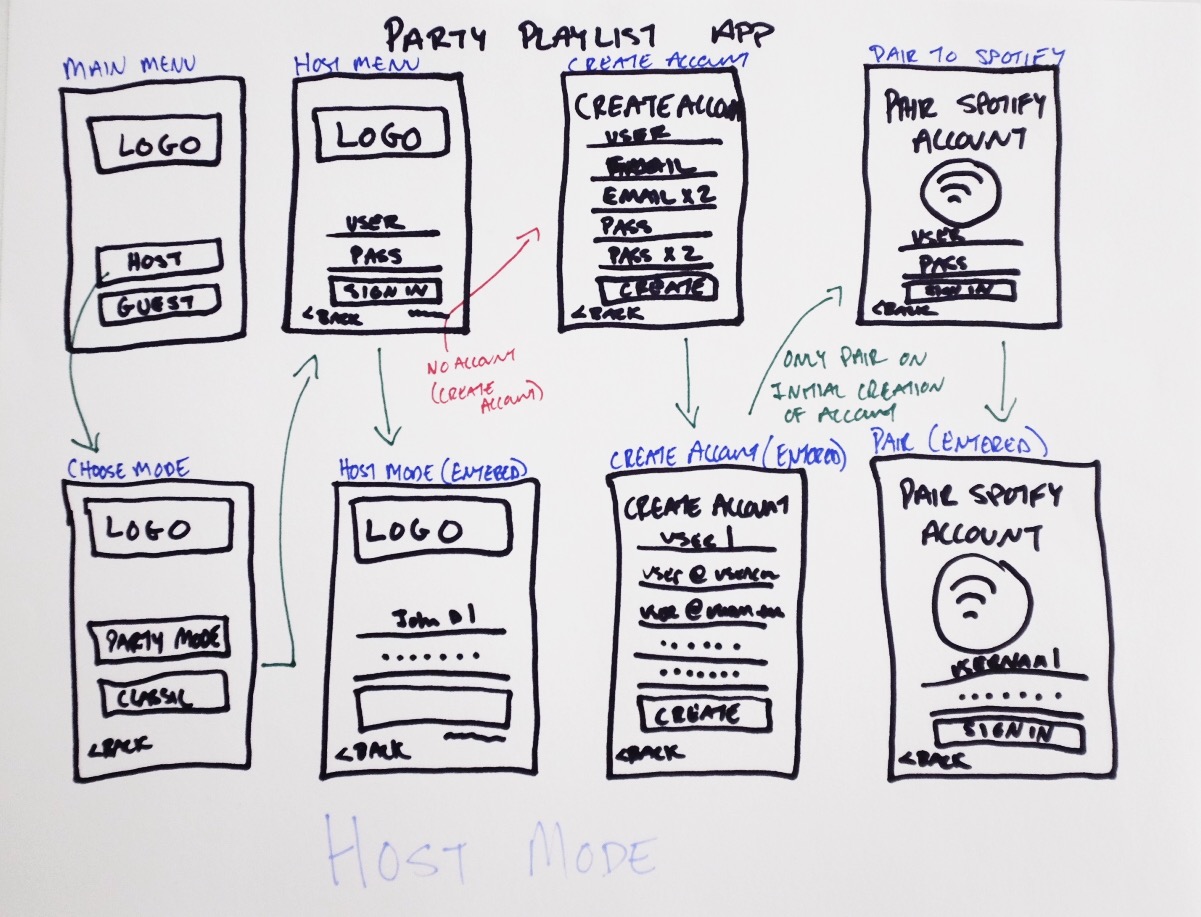 PARTY PLAYLIST APP
MAIN MENU
LOGO
HOST
GUEST
HOST MENU
LOGO
USER
PASS
SIGN IN
<BACK
NO ACCOUNT
(CREATE
ACCOUNT)
CREATE ACCOUNT
CREATE ACCOUN
USER
EMAIL
EMAIL X 2
PASS
PASS X 2
CREATE
<BACK
PAIR TO SPOTIFY
PAIR SPOTIFY
ACCOUNT
USER
PASS
SIGN IN
<BACK
ONLY PAIR ON
INITIAL CREATION
OF ACCOUNT
CHOOSE MODE
LOGO
PARTY MODE
CLASSIC
<BACK
HOST MODE (ENTERED)
LOGO
John D|
.......
<BACK
CREATE ACCOUNT (ENTERED)
CREATE ACCOUNT
USER|
USER @
USER @
......
.......
CREATE
<BACK
PAIR (ENTERED)
PAIR SPOTIFY
ACCOUNT
USERNAM|
.......
SIGN IN
<BACK
HOST MODE